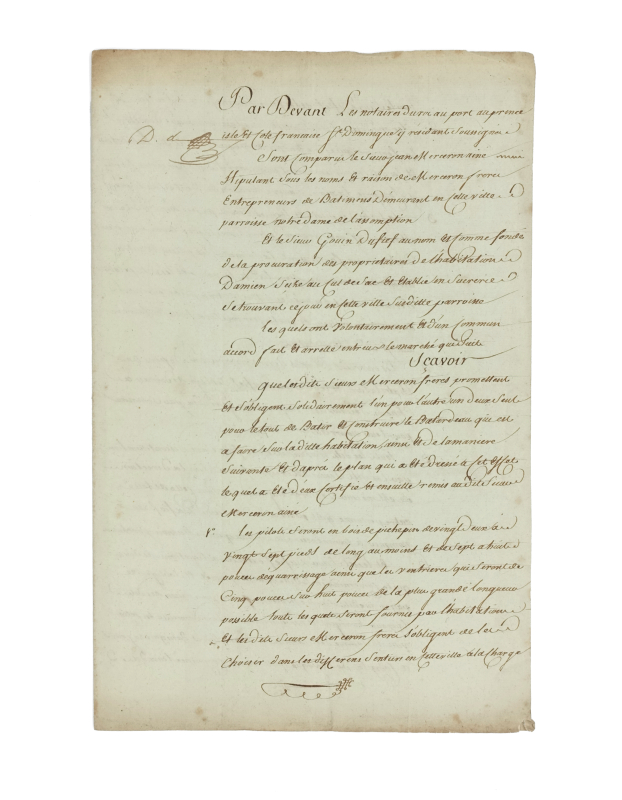 Par Devant Les notaires du roi au port au prince
D. d isle et Cote francoise St Domingue y residant Soussignés
Sont Comparus le Sieur jean Merceron ainé
Stipulant Sous les noms et raison de Merceron freres
Entrepreneurs de Batimens Demeurant en Cette ville
parroisse notre dame de l'assomption
Et le Sieur Gouin Dufief au nom et Comme fondé
de la procuration des proprietaires de l'habitation
Damien Sise au Cul de Sac et Etablie en Sucrerie
Se trouvant ce jour en Cette ville Susditte parroisse
les quels ont Volontairement et d'un Commun
accord fait et arretté entre eux le marché qui Suit
Scavoir
que lesdits Sieurs Merceron freres promettent
et s'obligent Solidairement l'un pour l'autre un deux Seul
pour le tout de Batir et Construire le Batardeau qui est
a faire Sur la ditte habitation ainsi et de la maniere
Suivante et d'après le plan qui a été dressé à Cet Effet
lequel a été d'eux Certifié et ensuitte remis au dit Sieur
Merceron ainé
1° les pilots Seront en bois de pichepin de vingt deux à
Vingt Sept pieds de long au moins et de Sept a huit
pouces d'equarrissage ainsi que les ventrieres qui Seront de
Cinq pouces Sur huit pouces de la plus grande longueur
possible toute les quels Seront fournis par l'habitation
Et lesdits Sieurs Merceron freres s'obligent de les
Choisir dans les differens Senteurs en Cette ville à la Charge